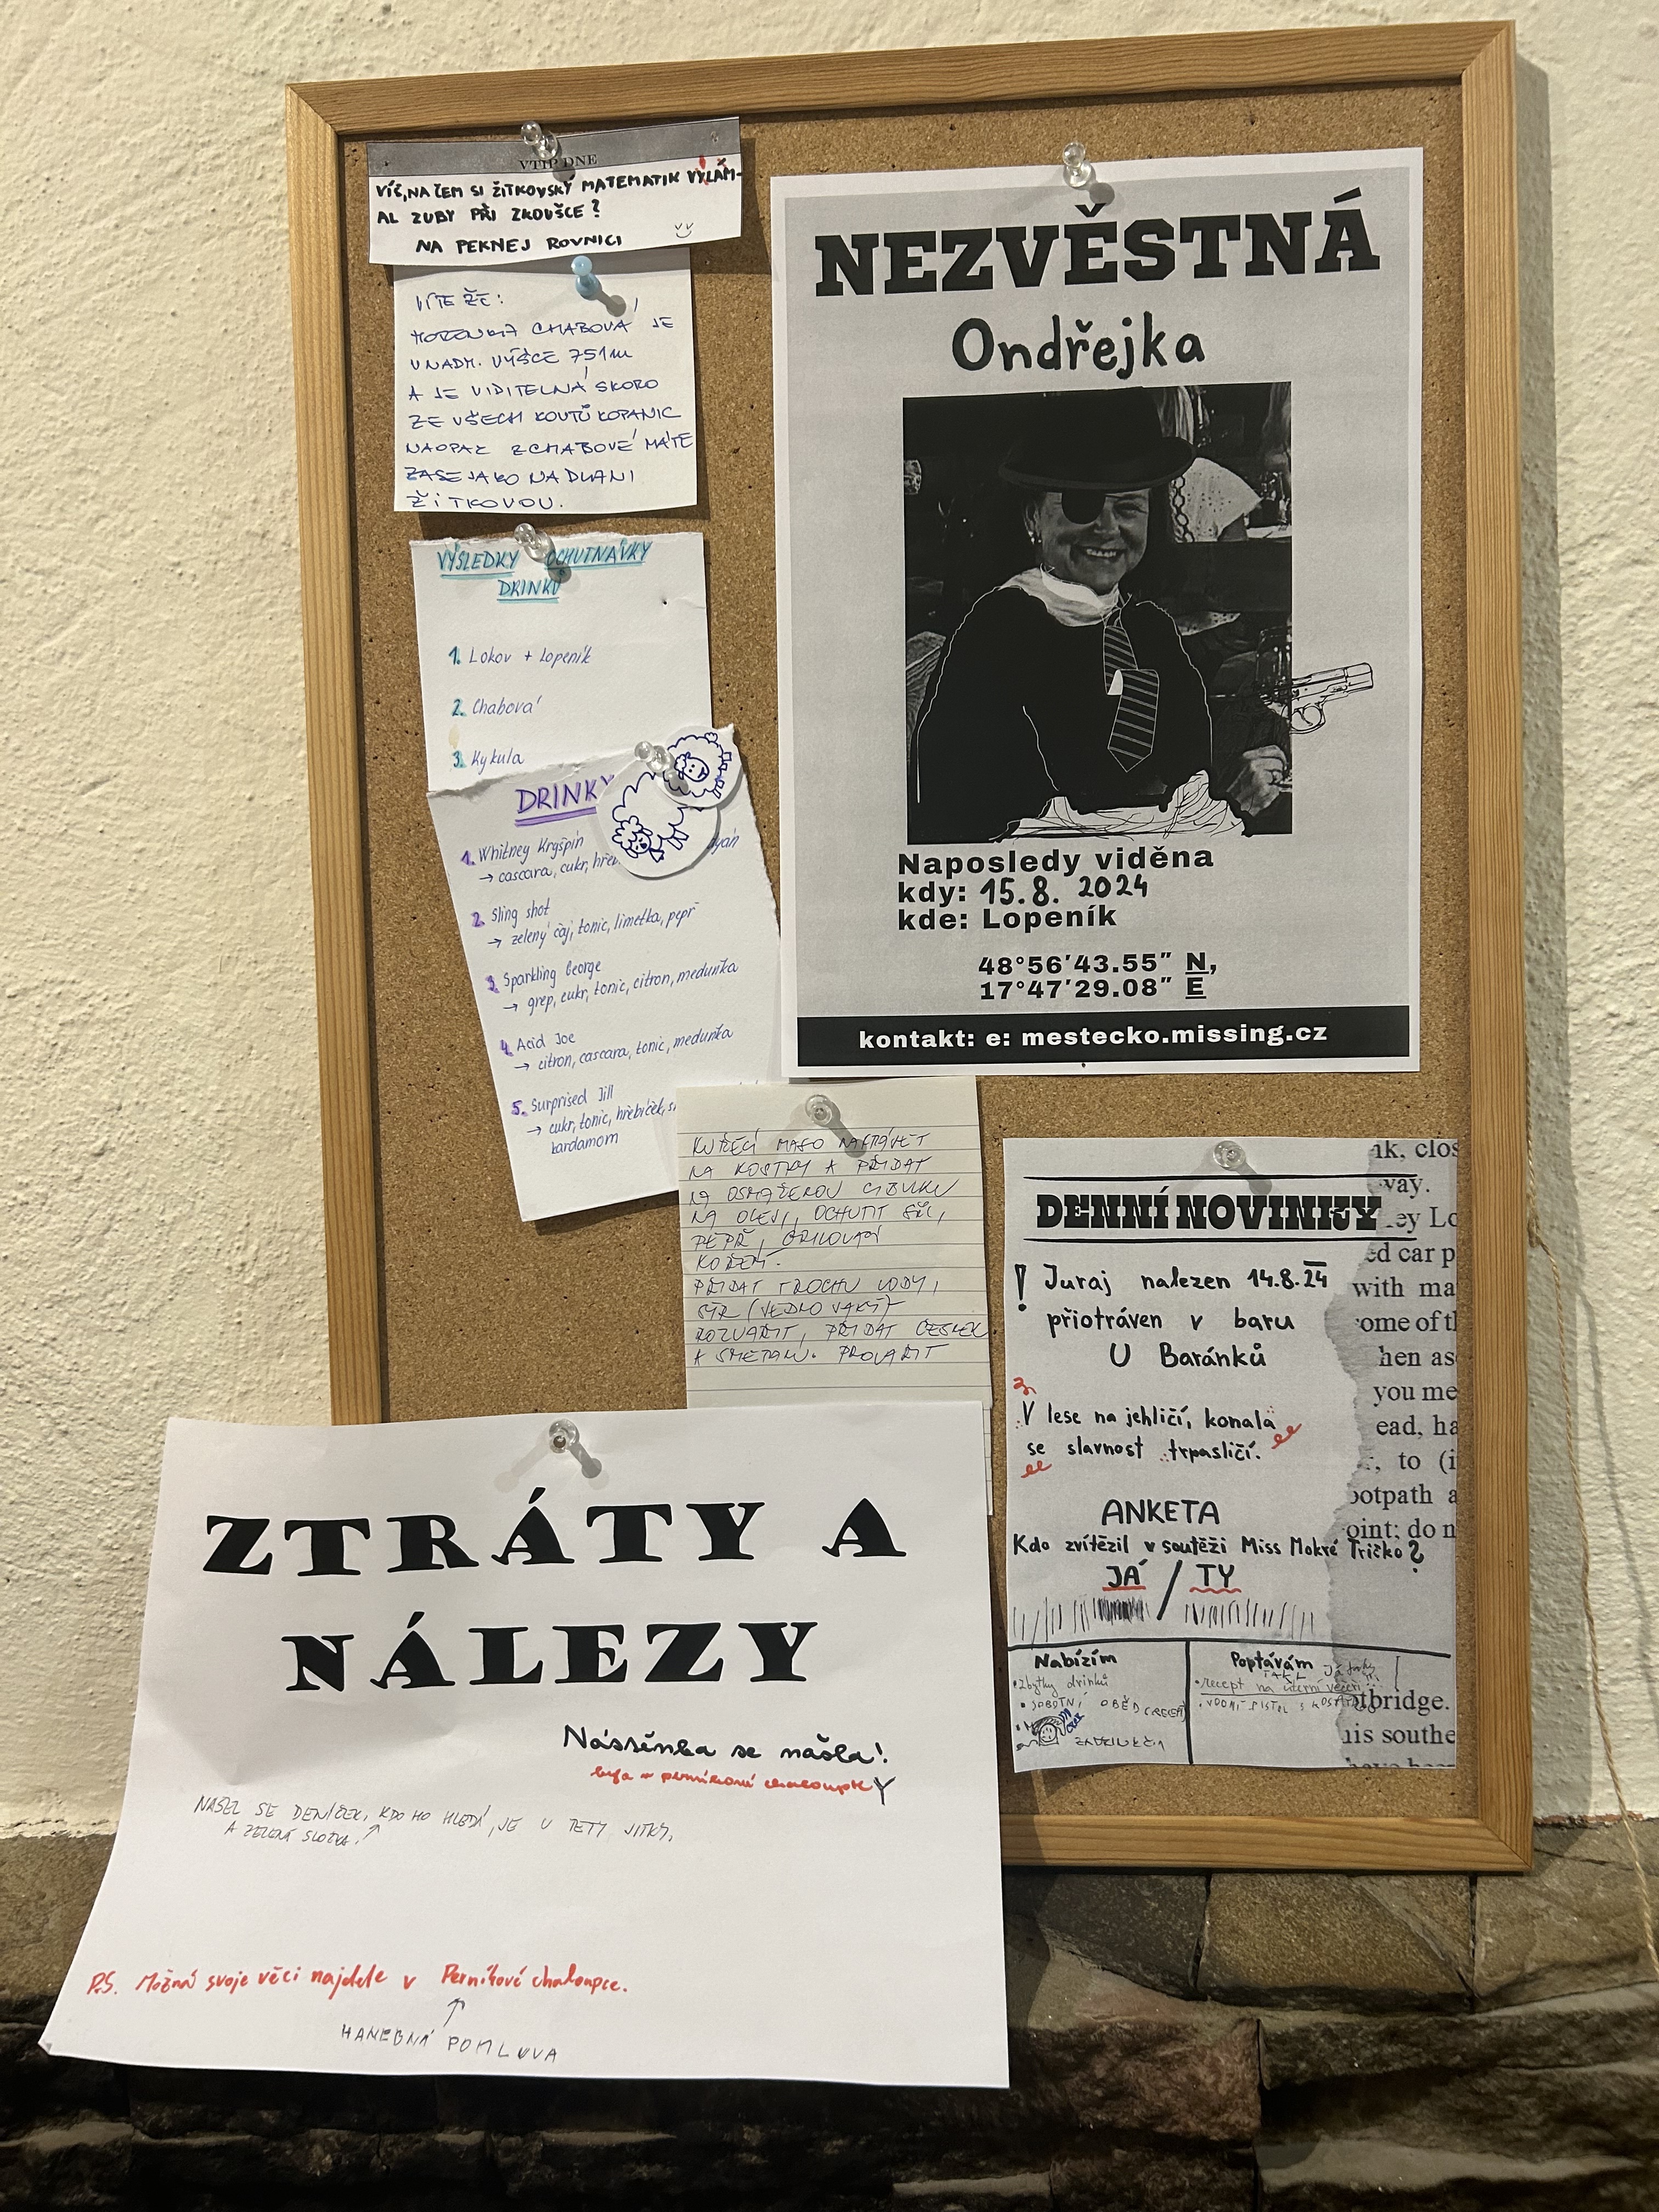 VTIP DNE
VÍŠ, NA ČEM SI ŽÍTKOVSKÝ MATEMATIK VYLÁM-
AL ZUBY PŘI ZKOUŠCE?
NA PEKNEJ ROVNICI
VÍTE ŽE:
HORENKA CHABOVÁ JE
V NADM. VÝŠCE 751m
A JE VIDITELNÁ SKORO
ZE VŠECH KOUTŮ KOPANIC
NAOPAK Z CHABOVÉ MÁTE
ZASE JAKO NA DLANI
ŽÍTKOVOU.
VÝSLEDKY OCHUTNÁVKY
DRINKŮ
1. Lokov + Lopeník
2. Chabová
3. Kykula
DRINKY
1. Whitney Kryšpín
→ cascara, cukr,
2. Sling shot
→ zelený čaj, tonic, limetka, pepř
3. Sparkling George
→ grep, cukr, tonic, citron, meduňka
4. Acid Joe
→ citron, cascara, tonic, meduňka
5. Surprised Jill
→ cukr, tonic, hřebíček,
kardamom
NEZVĚSTNÁ
Ondřejka
Naposledy viděna
kdy: 15.8. 2024
kde: Lopeník
48°56′43.55″ N,
17°47′29.08″ E
kontakt: e: mestecko.missing.cz
KUŘECÍ MASO NAKRÁJET
NA KOSTKY A PŘIDAT
NA OSMAŽENOU CIBULKU
NA OLEJI, OCHUTIT SŮL,
PEPŘ, GRILOVACÍ
KOŘENÍ.
PŘIDAT TROCHU VODY,
SÝR (VEDLO VAKÝ)
ROZVAŘIT, PŘIDAT ČESNEK
A SMETANU. PROVAŘIT
DENNÍ NOVINKY
! Juraj nalezen 14.8.24
přiotráven v baru
U Baránků
V lese na jehličí, konala
se slavnost trpasličí.
ANKETA
Kdo zvítězil v soutěži Miss Mokré Tričko?
JÁ / TY
Nabízím
• zbytky drinků
• SOBOTNÍ OBĚD (RECEPT)
Poptávám
• recept na úterní večeři
nk, clos
way.
ey Lo
ed car p
with ma
ome of th
hen as
you me
ead, ha
, to (i
ootpath a
oint; do n
tbridge.
his southe
ZTRÁTY A
NÁLEZY
Nástěnka se našla!
byla v perníkové chaloupce
NAŠEL SE DENÍČEK, KDO HO HLEDÁ, JE U TETY JITKY.
A ZELENÁ SLOŽKA.
P.S. Možná svoje věci najdete v Perníkové chaloupce.
HANEBNÁ POMLUVA